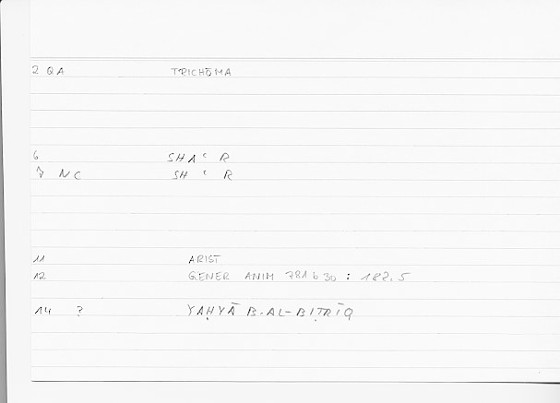 2 QA TRICHŌMA
6 SHAʿ R
7 NC SH ʿ R
11 ARIST
12 GENER ANIM 781 b 30 : 182.5
14 ? YAḤYĀ B. AL-BIṬRĪQ